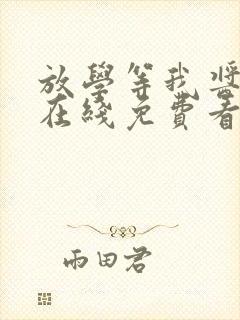 放學等我將
在綫免費看
雨田君